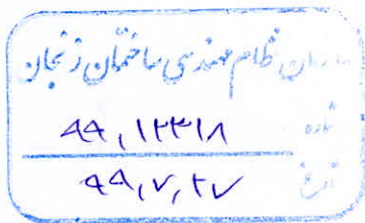 سازمان نظام مهندسی ساختمان زنجان
شماره ۹۹,۱۲۳۱۸
تاریخ ۹۹,۷,۲۷